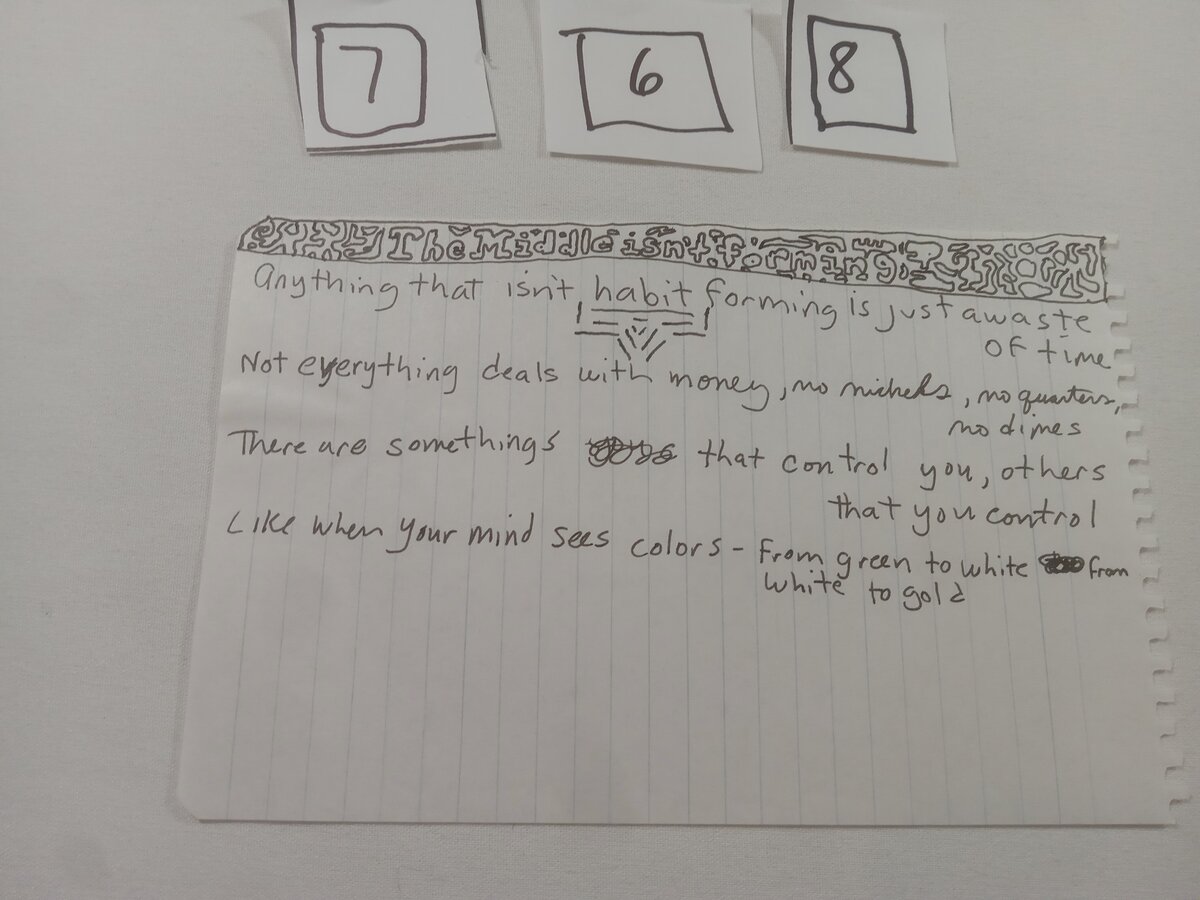 7 6 8
The Middle isn't forming.
Anything that isn't habit forming is just a waste
of time
Not everything deals with money, no nickels, no quarters,
no dimes
There are somethings that control you, others
that you control
Like when your mind sees colors - from green to white from
white to gold